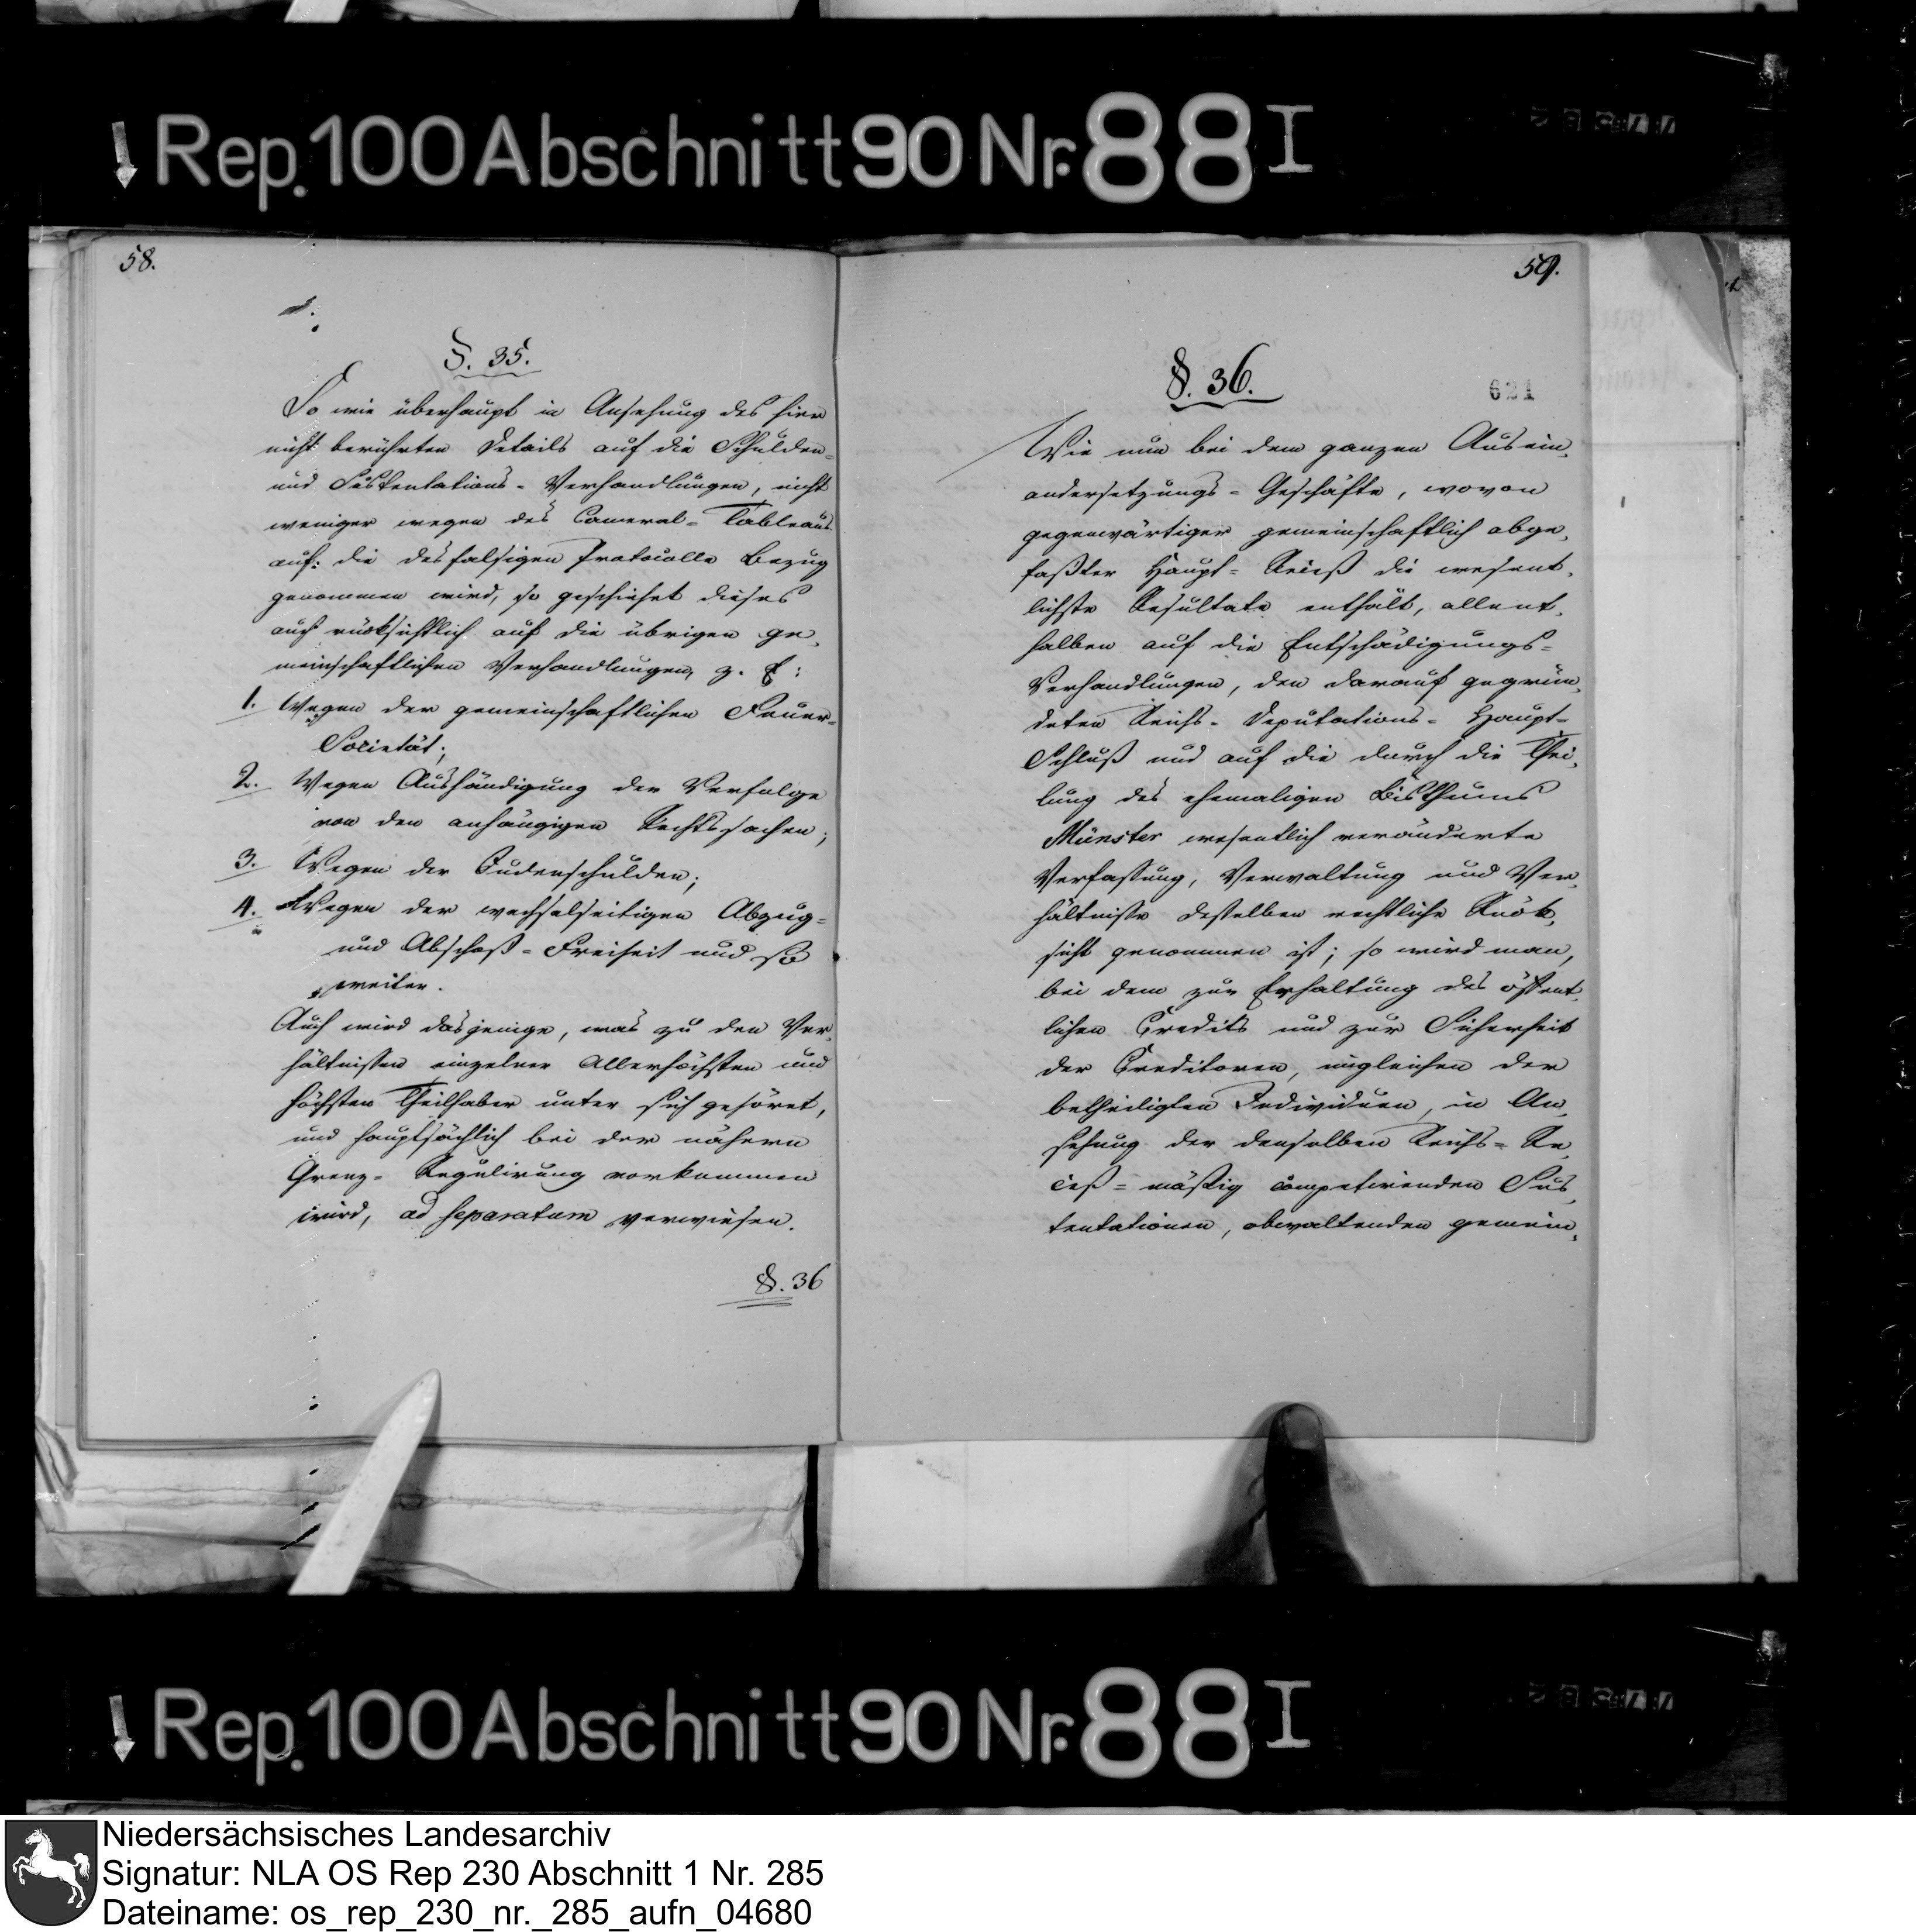 Rep. 100 Abschnitt 90 Nr. 88 I
58.
§. 35.
So wie überhaupt in Ansehung des hier
nicht berührten Details auf die Schulden-
und Sustentations-Verhandlungen, nicht
weniger wegen des Cameral-Tableaus
auf die desfalsigen Protocolle Bezug
genommen wird, so geschiehet dieses
auch rücksichtlich auf die übrigen ge,
meinschaftlichen Verhandlungen, z. E:
1. Wegen der gemeinschaftlichen Feuer-
Societät;
2. Wegen Aushändigung der Verfolge
von den anhängigen Rechtssachen;
3. Wegen der Judenschulden;
4. Wegen der wechselseitigen Abzug-
und Abschoß-Freiheit und so
weiter.
Auch wird dasjenige, was zu den Ver,
hältnissen einzelner Allerhöchsten und
höchsten Theilhaber unter sich gehöret,
und hauptsächlich bei der nähern
Grenz-Regulirung vorkommen
wird, ad separatum verwiesen.
§. 36
59.
621
§. 36.
Wie nun bei dem ganzen Ausein,
andersetzungs-Geschäfte, wovon
gegenwärtiger gemeinschaftlich abge,
faßter Haupt-Receß die wesent,
lichste Resultate enthält, allent,
halben auf die Entschädigungs-
Verhandlungen, den darauf gegrün,
deten Reichs-Deputations-Haupt-
Schluß und auf die durch die Thei,
lung des ehemaligen Bisthums
Münster wesentlich veränderte
Verfassung, Verwaltung und Ver,
hältnisse desselben rechtliche Rück,
sicht genommen ist; so wird man,
bei dem zur Erhaltung des öffent,
lichen Credits und zur Sicherheit
der Creditoren, ingleichen der
betheiligten Individuen, in An,
sehung der denselben Reichs-Re,
ceß-mäßig competirenden Sus,
tentationen, obwaltenden gemein,
Rep. 100 Abschnitt 90 Nr. 88 I
Niedersächsisches Landesarchiv
Signatur: NLA OS Rep 230 Abschnitt 1 Nr. 285
Dateiname: os_rep_230_nr._285_aufn_04680